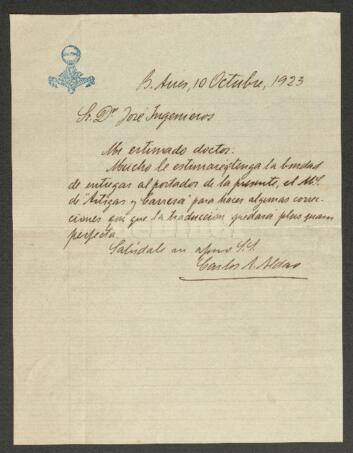 B. Aires, 10 Octubre, 1923
Sr. Dr. José Ingenieros
Mi estimado doctor:
Mucho le estimaré tenga la bondad
de entregar al portador de la presente, el MS.
de "Artigas y Carrera" para hacer algunas correc-
ciones con que la traducción quedará plus quam
perfecta
Salúdale su afmo S.S.
Carlos A. Aldao